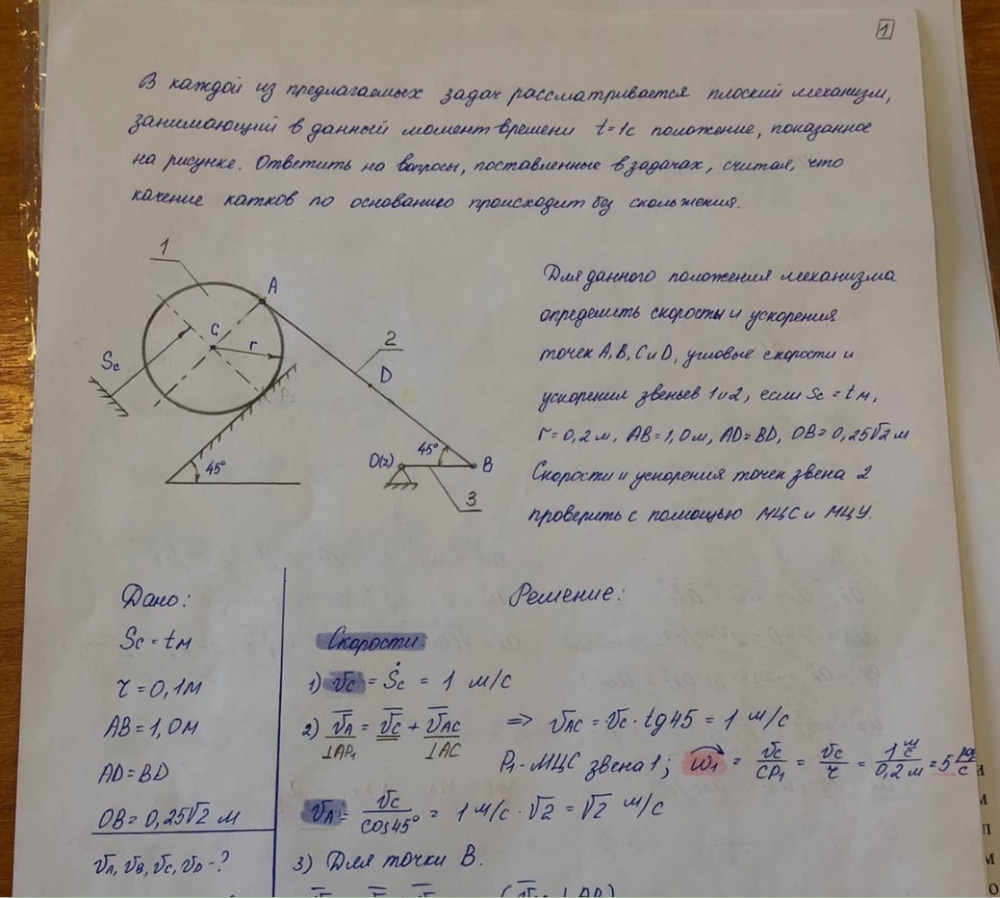 1
В каждой из предлагаемых задач рассматривается плоский механизм,
занимающий в данный момент времени t=1с положение, показанное
на рисунке. Ответить на вопросы, поставленные в задачах, считая, что
качение катков по основанию происходит без скольжения.
1
A
C
r
Sc
2
D
45°
45°
O(z)
B
3
Для данного положения механизма
определить скорости и ускорения
точек A, B, C и D, угловые скорости и
ускорения звеньев 1 и 2, если Sc = t м,
r = 0,2 м, AB = 1,0 м, AD = BD, OB = 0,25√2 м
Скорости и ускорения точек звена 2
проверить с помощью МЦС и МЦУ.
Дано:
Sc = t м
r = 0,1 м
AB = 1,0 м
AD = BD
OB = 0,25√2 м
vA, vB, vC, vD - ?
Решение:
Скорости:
1) vC = Ṡc = 1 м/с
2) v̅A = v̅C + v̅AC => vAC = vC · tg45 = 1 м/с
⊥AP₁ ⊥AC
P₁ - МЦС звена 1; ω₁ = vC/CP₁ = vC/r = 1 м/с / 0,2 м = 5 рад/с
vA = vC/cos45° = 1 м/с · √2 = √2 м/с
3) Для точки B.